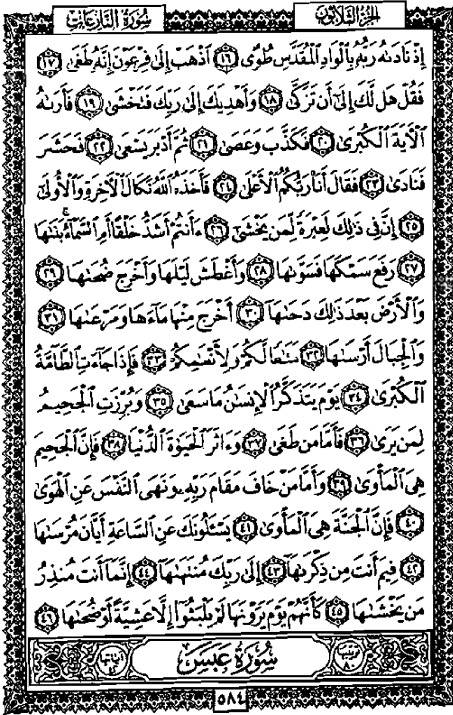 سُورَةُ النَّازِعَاتِ الجُزءُ الثَّلَاثُونَ
إِذْ نَادَىٰهُ رَبُّهُۥ بِٱلْوَادِ ٱلْمُقَدَّسِ طُوًى ١٦ ٱذْهَبْ إِلَىٰ فِرْعَوْنَ إِنَّهُۥ طَغَىٰ ١٧
فَقُلْ هَل لَّكَ إِلَىٰٓ أَن تَزَكَّىٰ ١٨ وَأَهْدِيَكَ إِلَىٰ رَبِّكَ فَتَخْشَىٰ ١٩ فَأَرَىٰهُ
ٱلْأٓيَةَ ٱلْكُبْرَىٰ ٢٠ فَكَذَّبَ وَعَصَىٰ ٢١ ثُمَّ أَدْبَرَ يَسْعَىٰ ٢٢ فَحَشَرَ
فَنَادَىٰ ٢٣ فَقَالَ أَنَا۠ رَبُّكُمُ ٱلْأَعْلَىٰ ٢٤ فَأَخَذَهُ ٱللَّهُ نَكَالَ ٱلْأٓخِرَةِ وَٱلْأُولَىٰٓ
٢٥ إِنَّ فِى ذَٰلِكَ لَعِبْرَةً لِّمَن يَخْشَىٰٓ ٢٦ ءَأَنتُمْ أَشَدُّ خَلْقًا أَمِ ٱلسَّمَآءُ ۚ بَنَىٰهَا
٢٧ رَفَعَ سَمْكَهَا فَسَوَّىٰهَا ٢٨ وَأَغْطَشَ لَيْلَهَا وَأَخْرَجَ ضُحَىٰهَا ٢٩
وَٱلْأَرْضَ بَعْدَ ذَٰلِكَ دَحَىٰهَآ ٣٠ أَخْرَجَ مِنْهَا مَآءَهَا وَمَرْعَىٰهَا ٣١
وَٱلْجِبَالَ أَرْسَىٰهَا ٣٢ مَتَٰعًا لَّكُمْ وَلِأَنْعَٰمِكُمْ ٣٣ فَإِذَا جَآءَتِ ٱلطَّآمَّةُ
ٱلْكُبْرَىٰ ٣٤ يَوْمَ يَتَذَكَّرُ ٱلْإِنسَٰنُ مَا سَعَىٰ ٣٥ وَبُرِّزَتِ ٱلْجَحِيمُ
لِمَن يَرَىٰ ٣٦ فَأَمَّا مَن طَغَىٰ ٣٧ وَءَاثَرَ ٱلْحَيَوٰةَ ٱلدُّنْيَا ٣٨ فَإِنَّ ٱلْجَحِيمَ
هِىَ ٱلْمَأْوَىٰ ٣٩ وَأَمَّا مَنْ خَافَ مَقَامَ رَبِّهِۦ وَنَهَى ٱلنَّفْسَ عَنِ ٱلْهَوَىٰ
٤٠ فَإِنَّ ٱلْجَنَّةَ هِىَ ٱلْمَأْوَىٰ ٤١ يَسْـَٔلُونَكَ عَنِ ٱلسَّاعَةِ أَيَّانَ مُرْسَىٰهَا
٤٢ فِيمَ أَنتَ مِن ذِكْرَىٰهَآ ٤٣ إِلَىٰ رَبِّكَ مُنتَهَىٰهَآ ٤٤ إِنَّمَآ أَنتَ مُنذِرُ
مَن يَخْشَىٰهَا ٤٥ كَأَنَّهُمْ يَوْمَ يَرَوْنَهَا لَمْ يَلْبَثُوٓا۟ إِلَّا عَشِيَّةً أَوْ ضُحَىٰهَا ٤٦
سُورَةُ عَبَسَ
٥٨٤